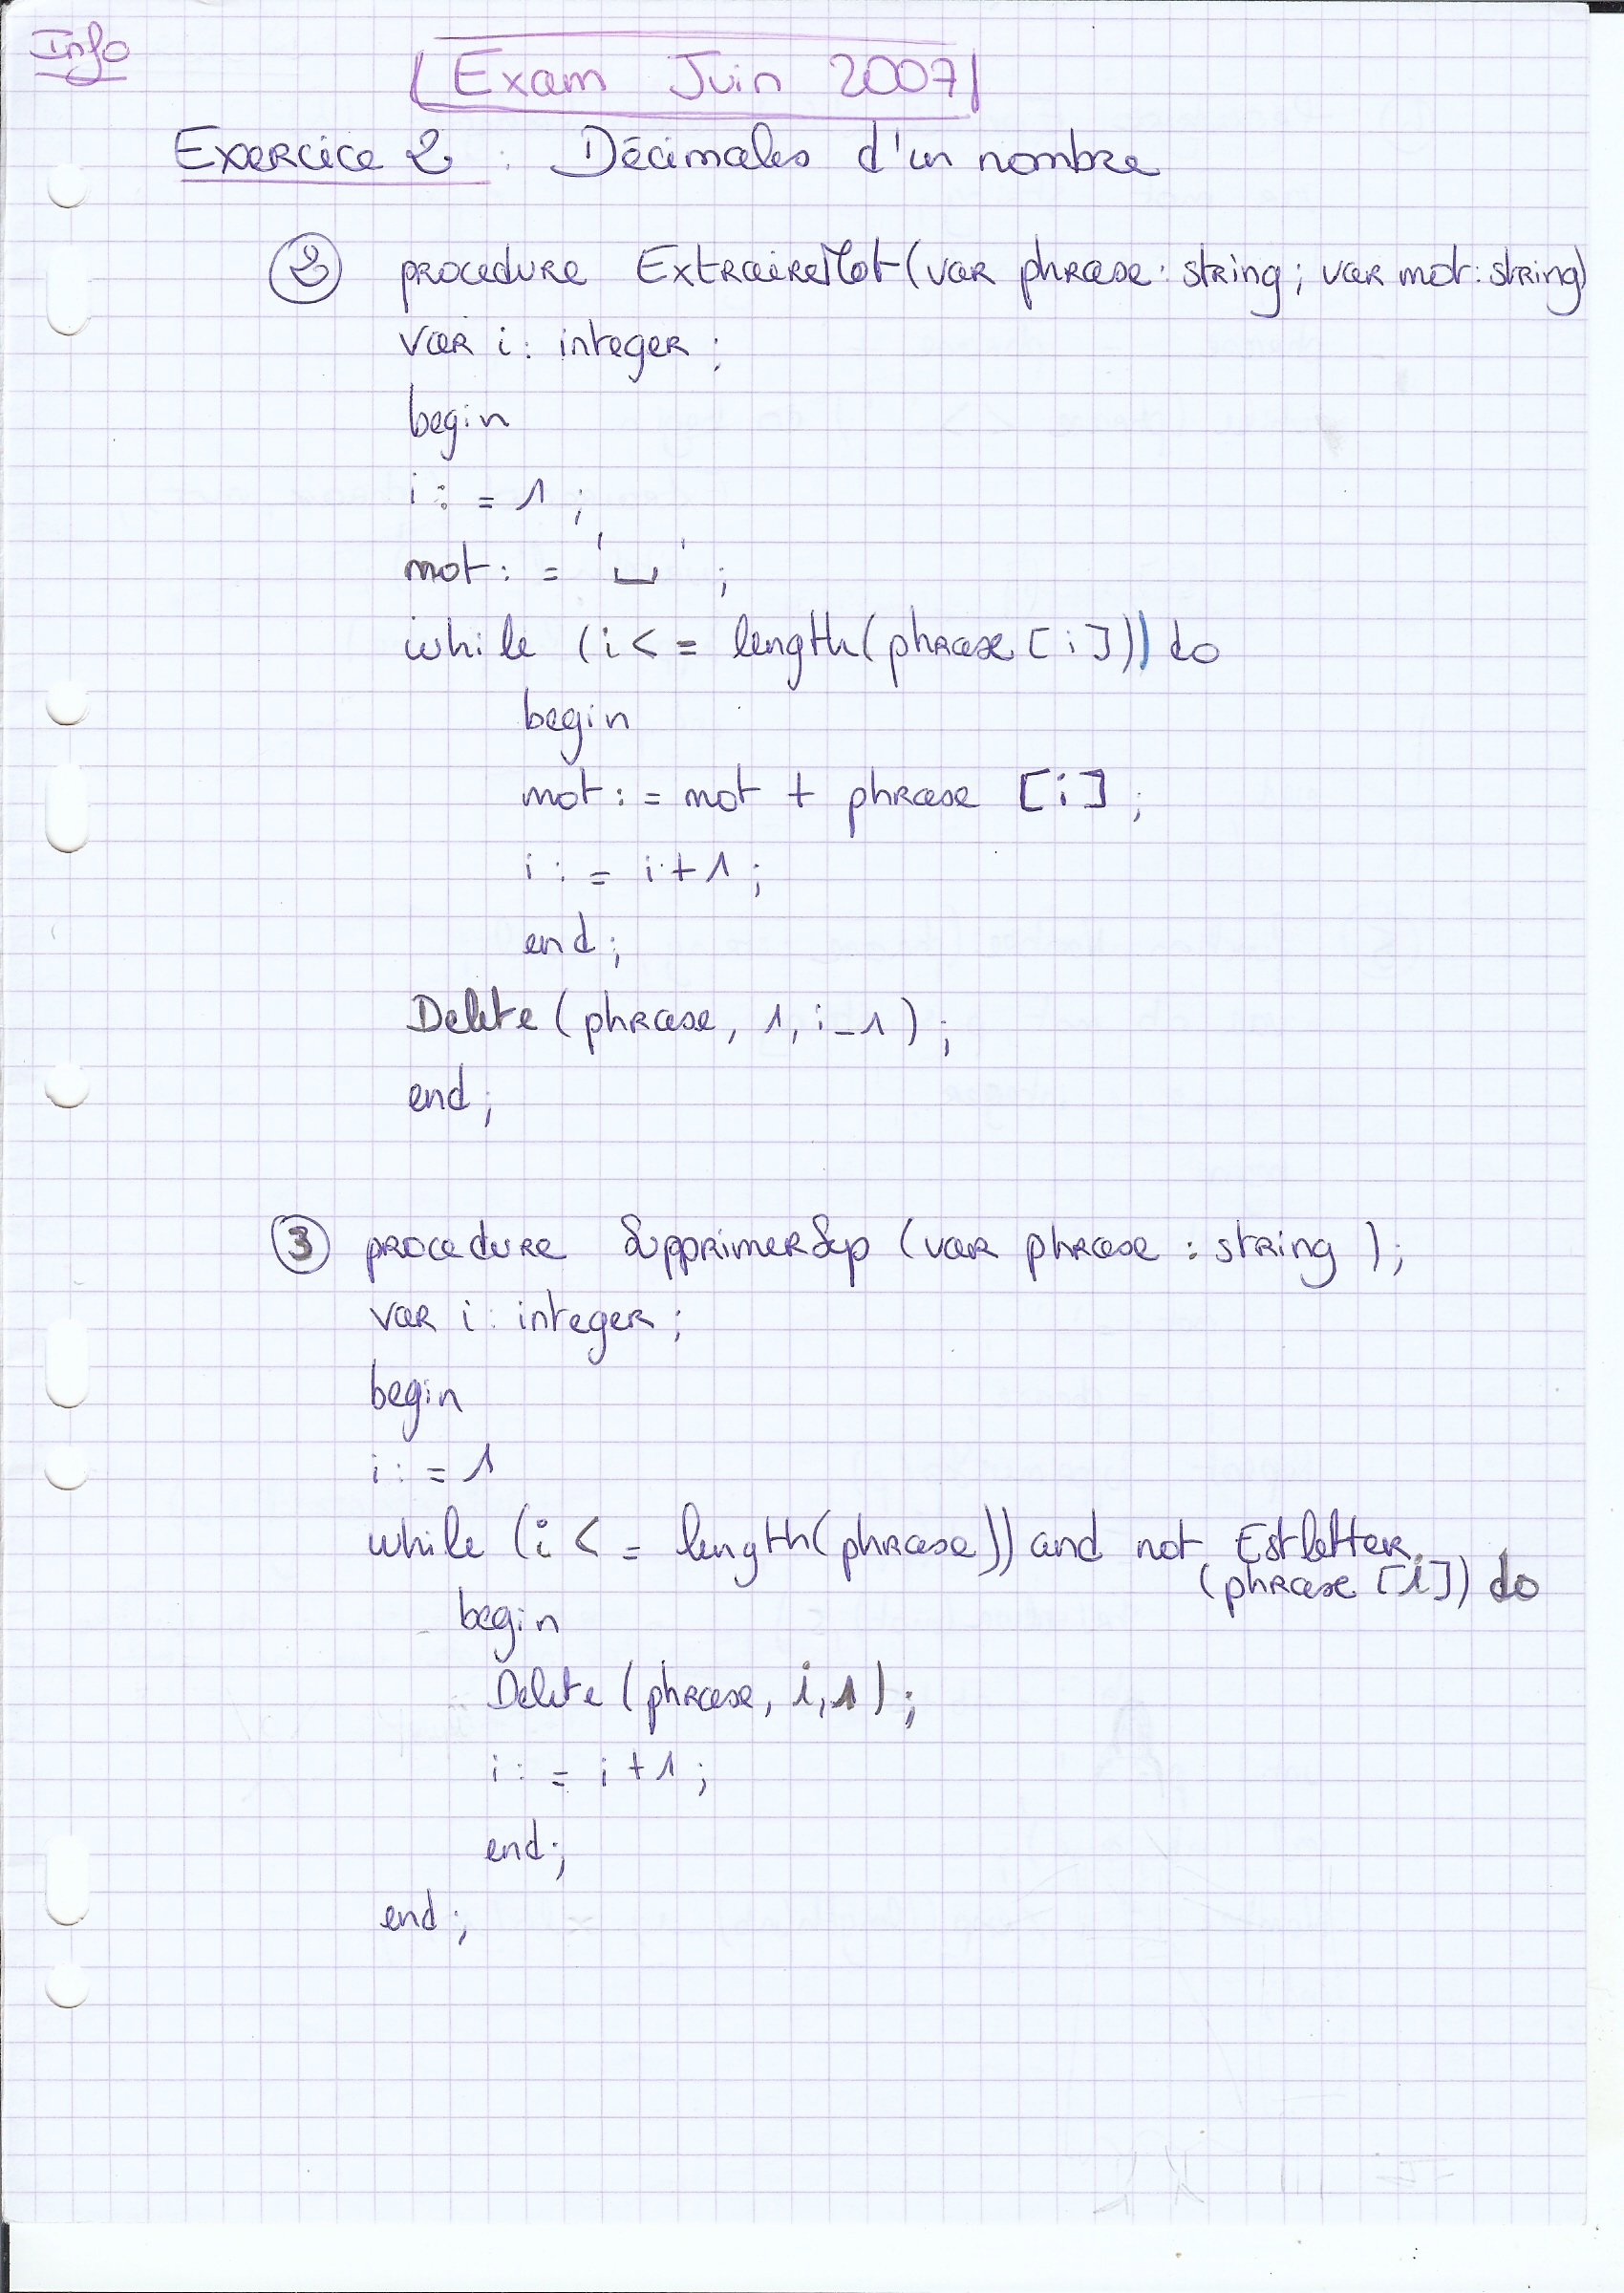 Info
Exam Juin 2007
Exercice 2 : Décimales d'un nombre
② procedure ExtraireMot(var phrase : string ; var mot : string)
var i : integer ;
begin
i := 1 ;
mot := '␣' ;
while (i <= length(phrase [i])) do
begin
mot := mot + phrase [i] ;
i := i+1 ;
end ;
Delete (phrase, 1, i-1) ;
end ;
③ procedure SupprimerSep (var phrase : string ) ;
var i : integer ;
begin
i := 1
while (i <= length(phrase)) and not Estletter
(phrase [i]) do
begin
Delete (phrase, i, 1) ;
i := i+1 ;
end ;
end ;